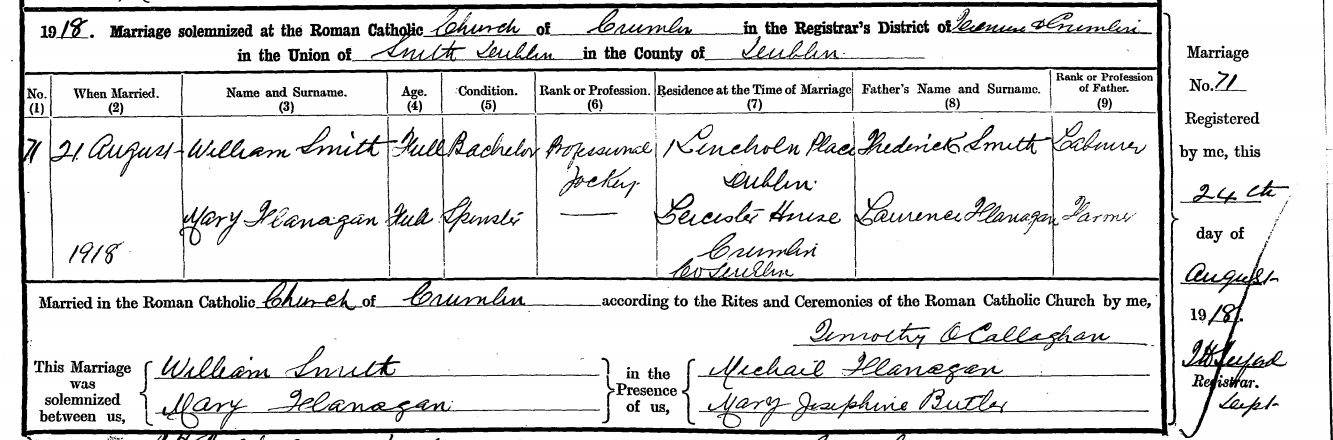 1918. Marriage solemnized at the Roman Catholic Church of Crumlin in the Registrar's District of & Crumlin
in the Union of South Dublin in the County of Dublin.
No. (1) When Married. (2) Name and Surname. (3) Age. (4) Condition. (5) Rank or Profession. (6) Residence at the Time of Marriage (7) Father's Name and Surname. (8) Rank or Profession of Father. (9)
71 21 August William Smith Full Bachelor Professional Lincholn Place Frederick Smith Labourer
Jockey. Dublin.
Mary Flanagan Full Spinster — Leicester House Laurence Flanagan Farmer
1918 Crumlin
Co Dublin
Married in the Roman Catholic Church of Crumlin according to the Rites and Ceremonies of the Roman Catholic Church by me,
Timothy O'Callaghan
This Marriage was solemnized between us,
William Smith
Mary Flanagan
in the Presence of us,
Michael Flanagan
Mary Josephine Butler
Marriage
No. 71
Registered
by me, this
24th
day of
August
1918.
Registrar.